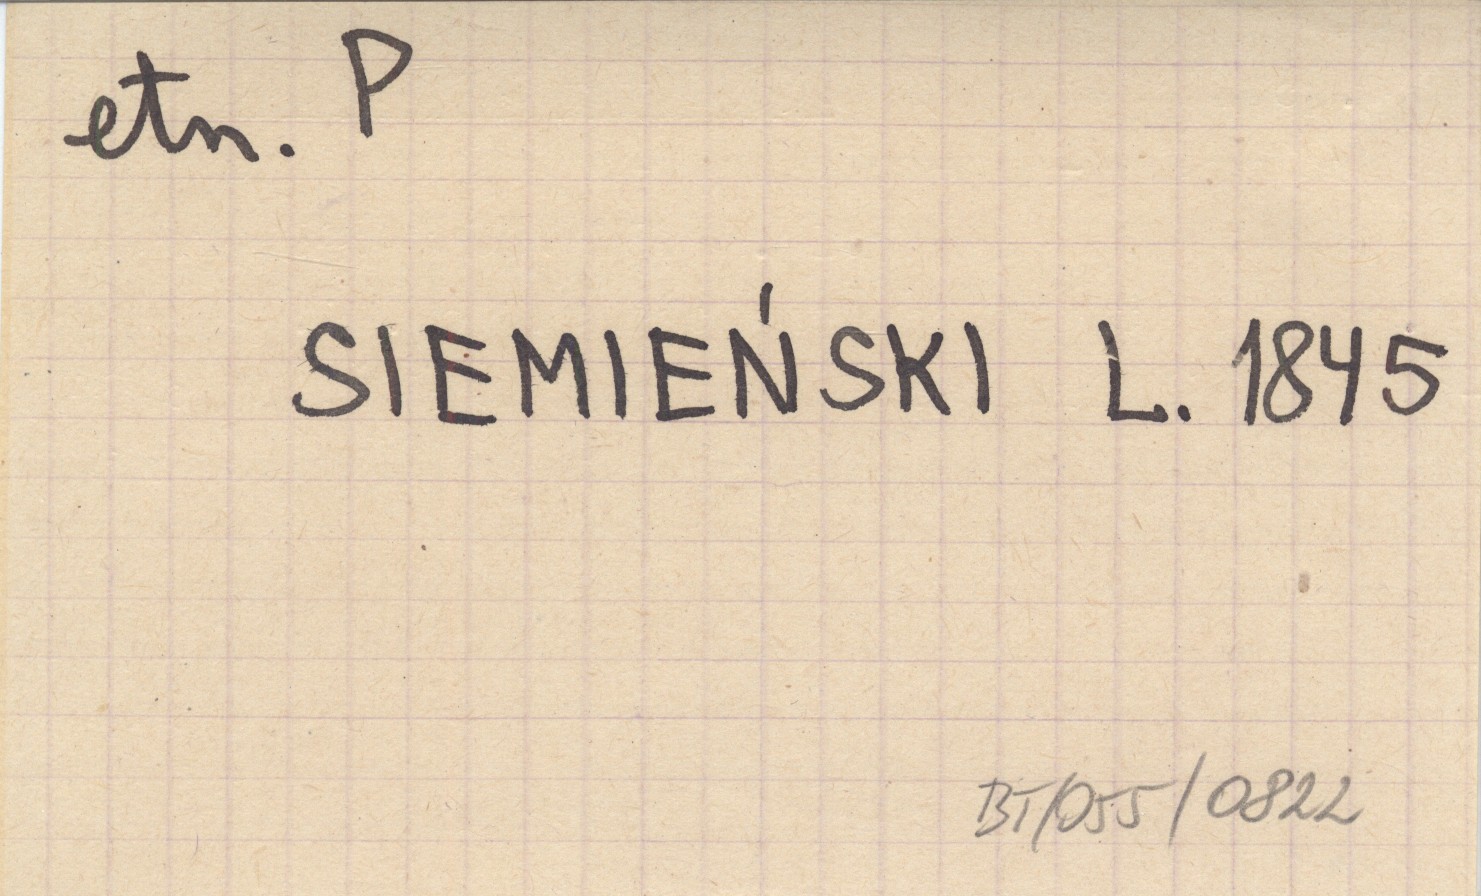 etn. P
SIEMIEŃSKI L. 1845
BT/055/0822